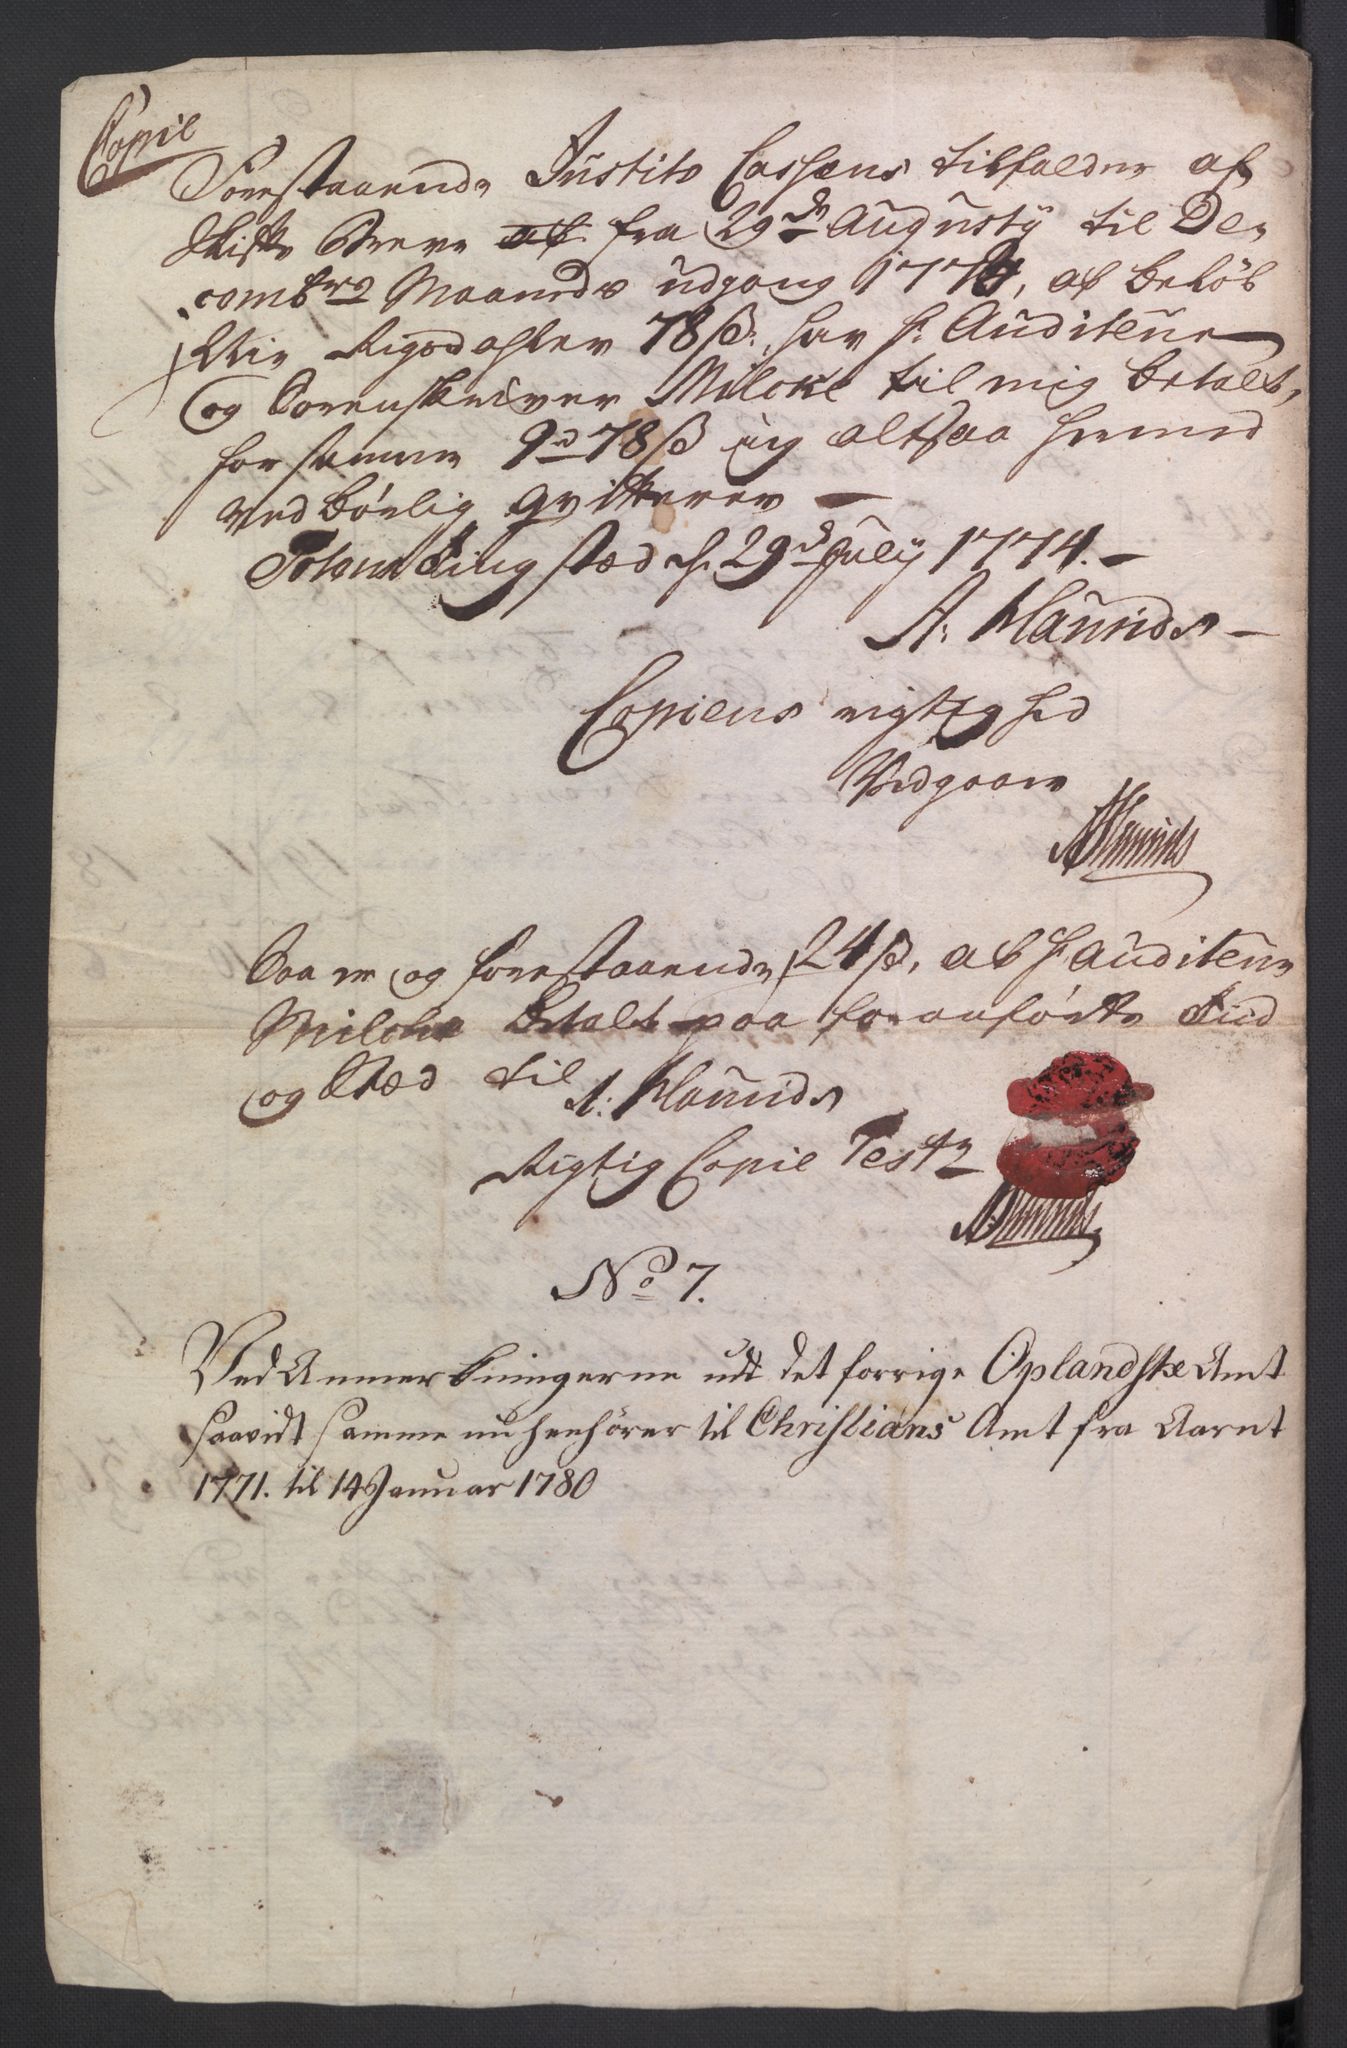 Copie
Forestaaende Justits Cassens tilfalden af
Skifte Breve af fra 29de Augusty til De,
cembrs Maaneds udgang 1770, af beløb
Nie Rigsdahler 78 ß: har hr Auditeur
og Sorenskriver Milche til mig betalt,
for samme 9rd 78 ß ieg altsaa hermed
ved børlig qvitterer —
Toten Tingstæd d. 29de July 1774. —
A: Maurids —
Copiens rigtighed
Vedgaaer
AMaurids
Saa er og forestaaende 24 ß, af hr Auditeur
Milche Betalt paa foranførte Tiid
og Stæd til
A: Maurids
Rigtig Copie Test
AMaurids
No 7.
Ved Anmerkningerne udi det forrige Oplandske Amt
saavidt samme nu henhører til Christians Amt fra Aaret
1771. til 14 Januar 1780